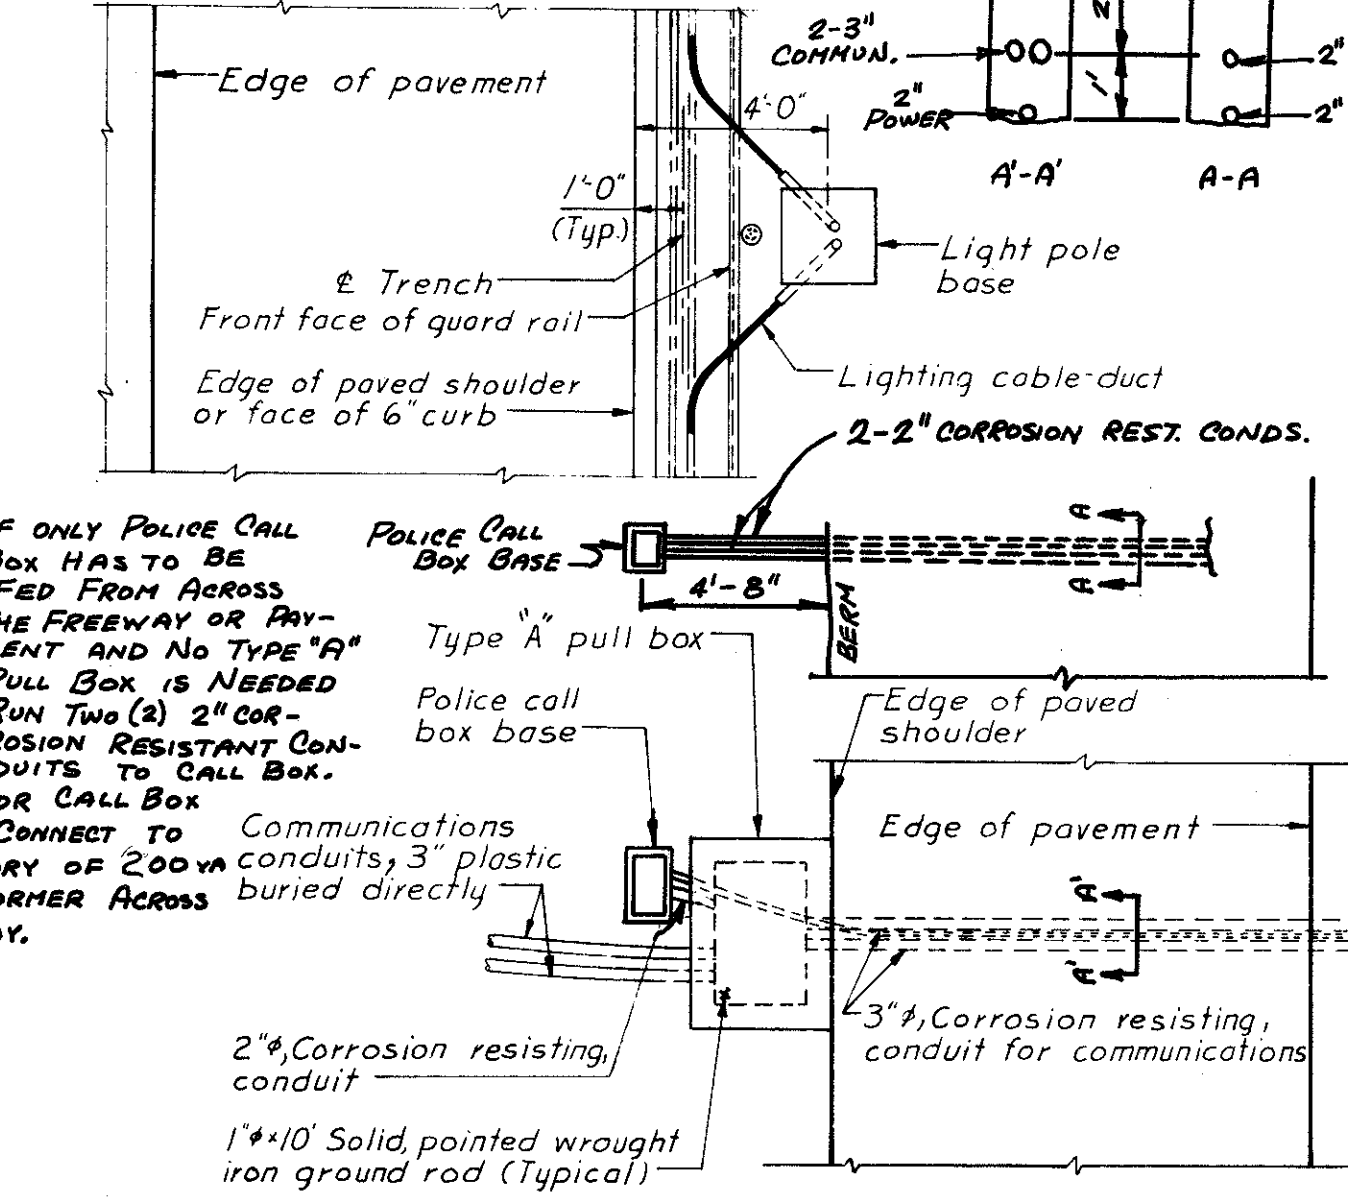 Edge of pavement
2-3"
COMMUN.
2"
POWER
1'
2"
2"
A'-A'
A-A
4'-0"
1'-0"
(Typ.)
₵ Trench
Front face of guard rail
Edge of paved shoulder
or face of 6" curb
Light pole
base
Lighting cable-duct
2-2" CORROSION REST. CONDS.
F ONLY POLICE CALL
OX HAS TO BE
FED FROM ACROSS
HE FREEWAY OR PAV-
ENT AND NO TYPE "A"
PULL BOX IS NEEDED
RUN TWO (2) 2" COR-
ROSION RESISTANT CON-
DUITS TO CALL BOX.
OR CALL BOX
CONNECT TO
RY OF 200 VA
ORMER ACROSS
Y.
POLICE CALL
BOX BASE
4'-8"
BERM
A
A
Type "A" pull box
Police call
box base
Edge of paved
shoulder
Edge of pavement
Communications
conduits, 3" plastic
buried directly
A'
A'
3"ϕ, Corrosion resisting,
conduit for communications
2"ϕ, Corrosion resisting,
conduit
1"ϕ×10' Solid, pointed wrought
iron ground rod (Typical)